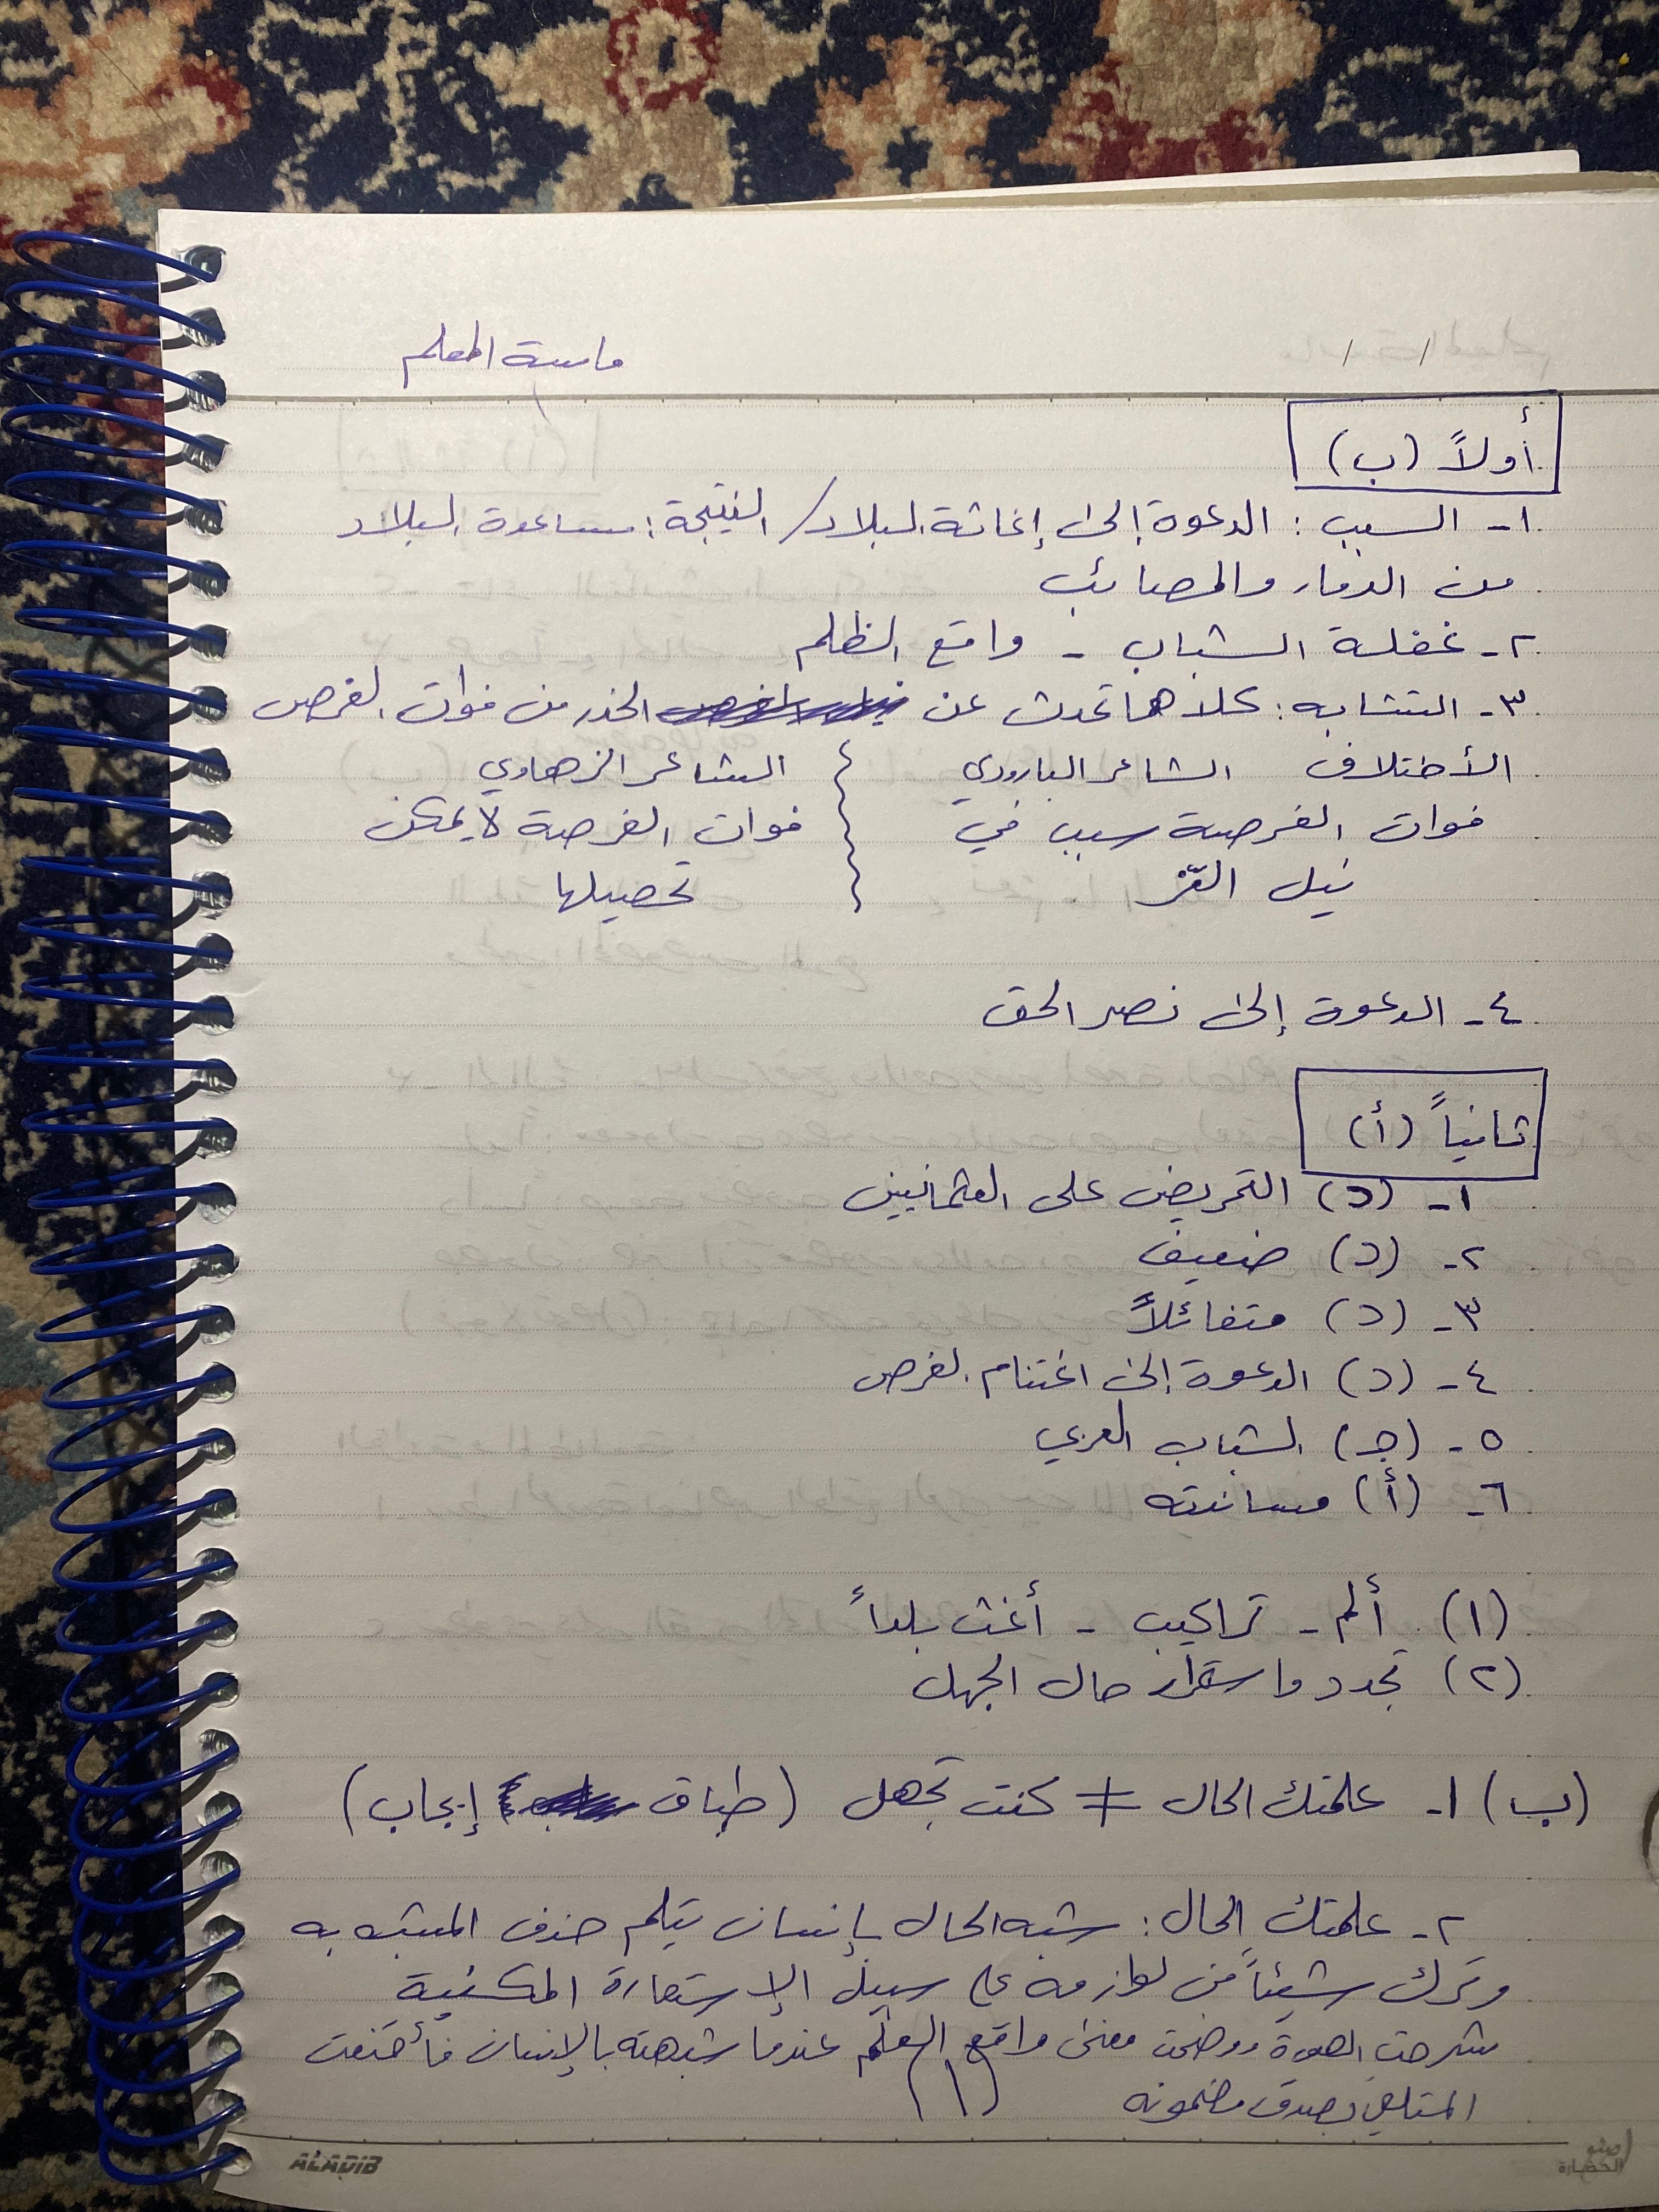 ماسة المعلم
أولاً (ب)
١- السبب : الدعوة إلى إغاثة البلاد / النتيجة : مساعدة البلاد
من الدمار والمصائب
٢- غفلة الشباب - واقع الظلم
٣- التشابه : كلاهما تحدث عن الحذر من فوات الفرص
الأختلاف الشاعر البارودي الشاعر الزهاوي
فوات الفرصة سبب في فوات الفرصة لا يمكن
نيل العزّ تحصيلها
٤- الدعوة إلى نصر الحق
ثانياً (أ)
١- (د) التحريض على العثمانيين
٢- (د) ضعيف
٣- (د) متفائلاً
٤- (د) الدعوة إلى اغتنام الفرص
٥- (ج) الشباب العربي
٦- (أ) مساندته
(١) ألم - تراكيب - أغث بلداً
(٢) تجدد واستقرار حال الجهل
(ب) ١- علمتك الحال ≠ كنت تجهل (طباق إيجاب)
٢- علمتك الحال : شبه الحال بإنسان يتلم حذف المشبه به
وترك شيئاً من لوازمه على سبيل الإستعارة المكنية
شرحت الصورة ووضحت معنى واقع الظلم عندما شبهته بالإنسان فأقنعت
المتلقي بصدق مضمونه
(١)
ALADIB
صنع الحضارة